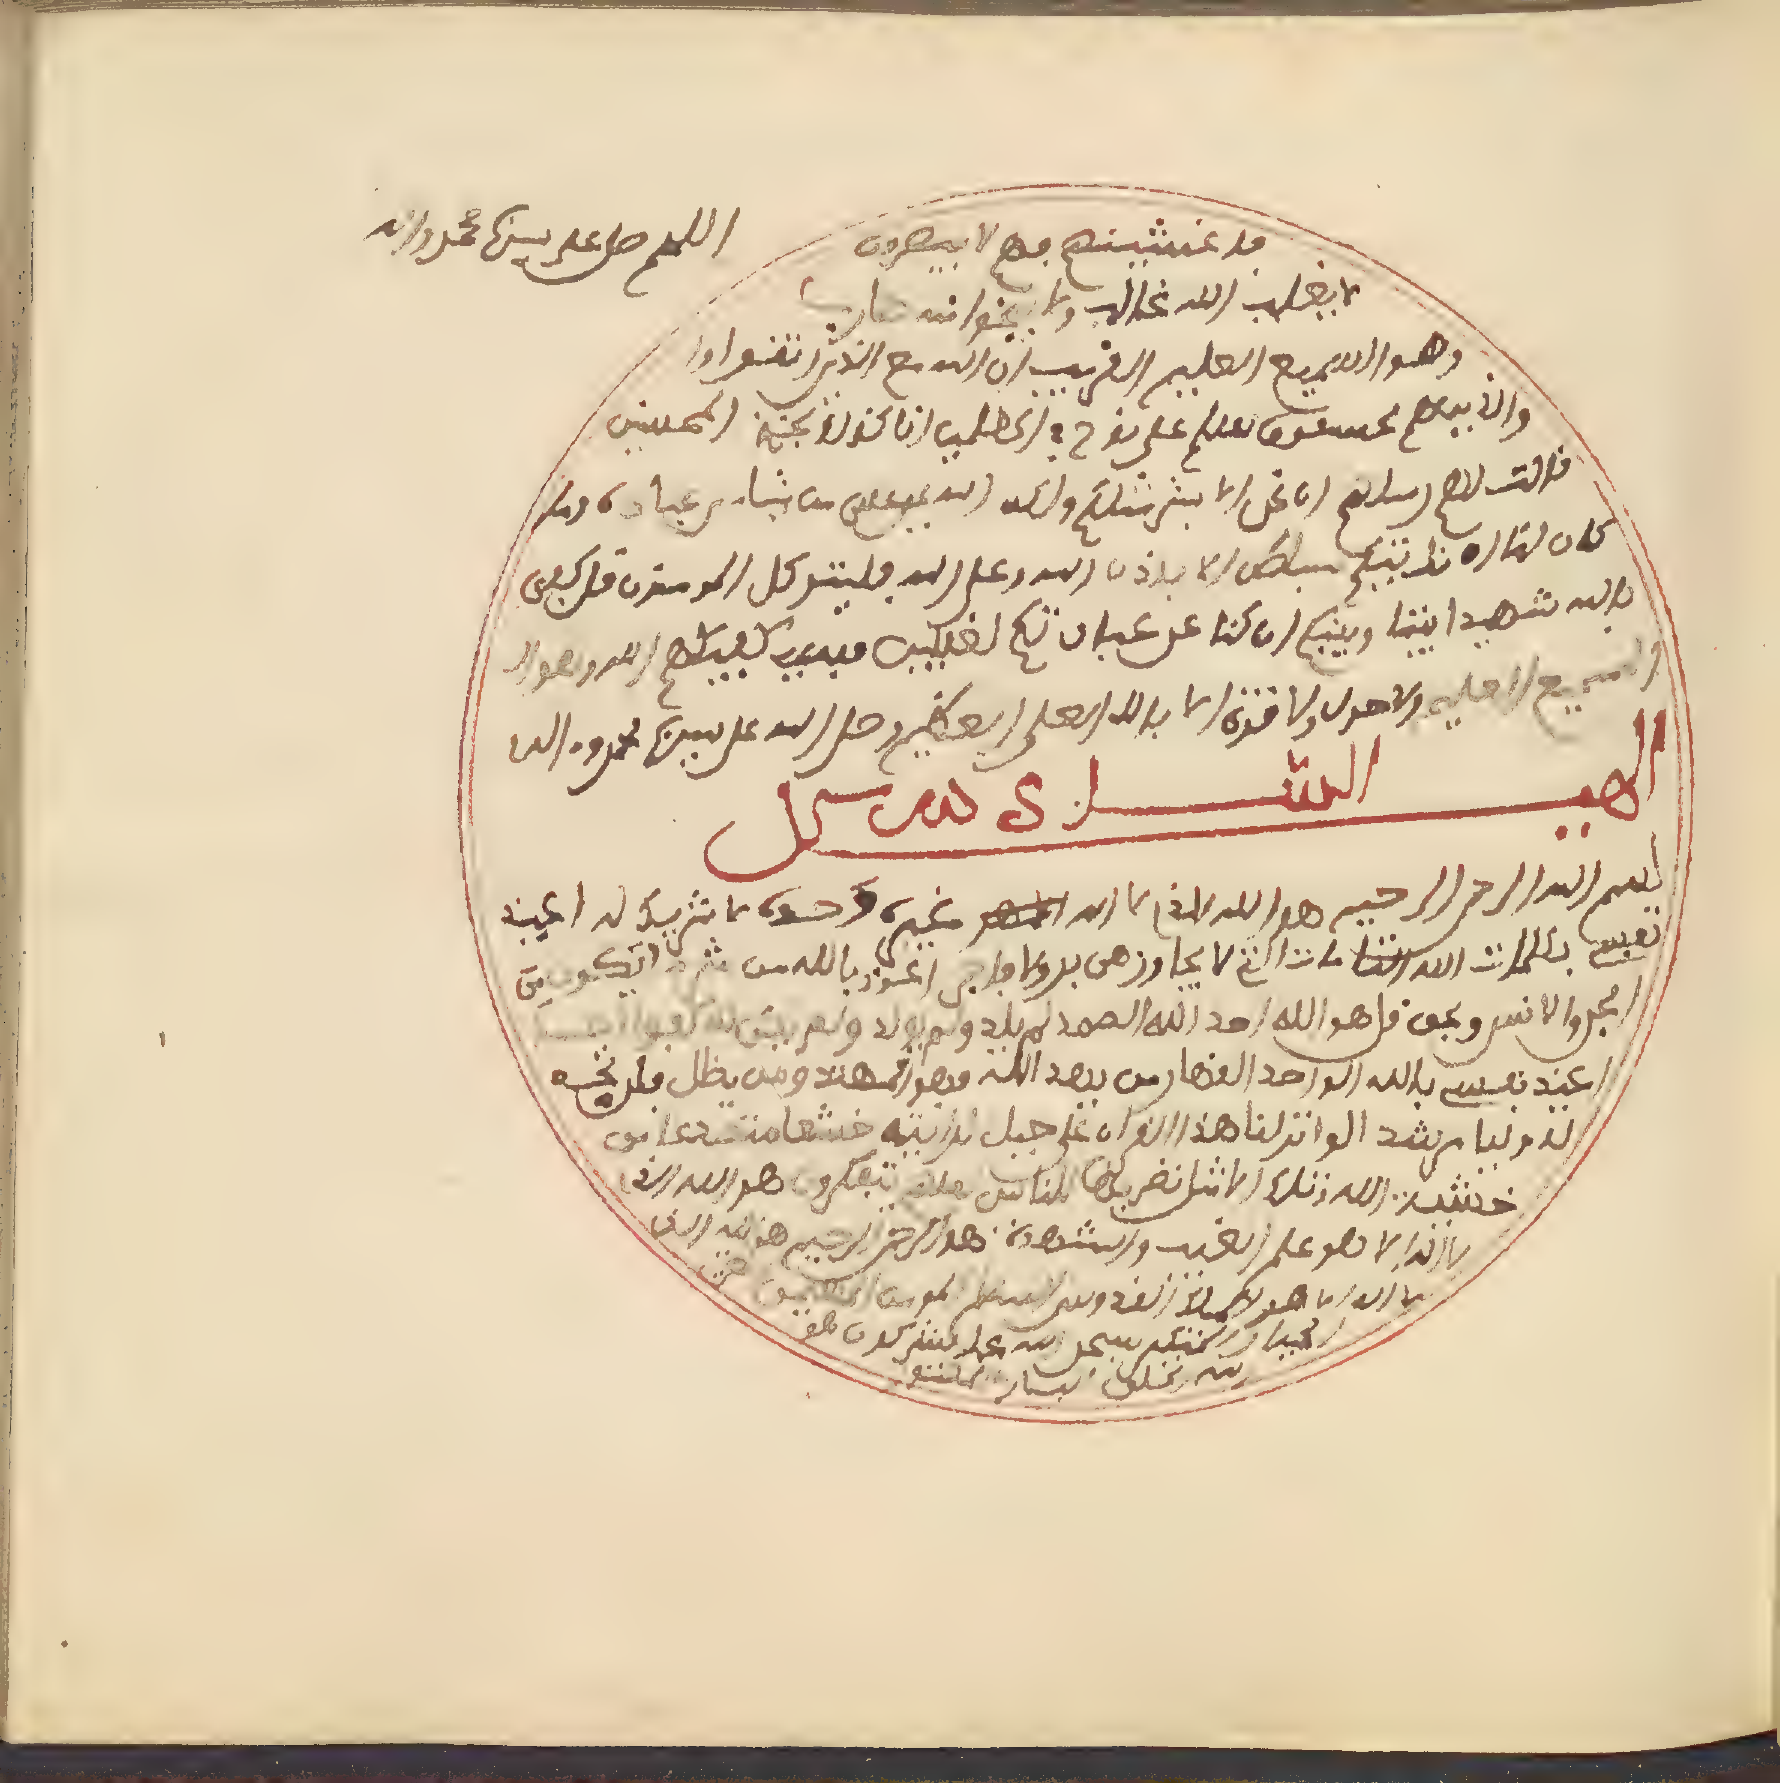 اللهم صل على سيدنا محمد واله
فاغشينهم فهم لا يبصرون
لا يغلب الله غالب ولا ينجوا منه هارب
وهو السميع العليم القريب ان الله مع الذين اتقوا وا
والذين هم محسنون سلم على نوح في العلمين انا كذلك نجزي المحسنين
قالت لهم رسلهم ان نحن الا بشر مثلكم ولكن الله يمن على من يشاء من عباده وما
كان لنا ان ناتيكم بسلطن الا باذن الله وعلى الله فليتوكل المومنون قل كفى
بالله شهيدا بيننا وبينكم ان كنا عن عبادتكم لغفلين فسيكفيكهم الله وهو ال
السميع العليم ولا حول ولا قوة الا بالله العلي العظيم وصل الله على سيدنا محمد وء اله
الهيـــكل
بسم الله الرحمن الرحيم هو الله الذي لا اله غيره وحده لا شريك له اعيذ
نفسي بكلمات الله التامات التي لا يجاوزهن بر ولا فاجر اعوذ بالله من شر
الجن والانس وبحق قل هو الله احد الله الصمد لم يلد ولم يولد ولم يكن له كفوا احد
اعيذ نفسي بالله الواحد القهار من يهد الله فهو المهتد ومن يظلل فلن تجد
له وليا مرشدا لو انزلنا هذا القران على جبل لرايته خشعا متصدعا من
خشية الله وتلك الامثل نضربها للناس لعلهم يتفكرون هو الله الذي
لا اله الا هو علم الغيب والشهدة هو الرحمن الرحيم هو الله الذي
لا اله الا هو الملك القدوس السلم المومن المهيمن العزيز
الجبار المتكبر سبحن الله عما يشركون هو
الله الخلق البار المصور